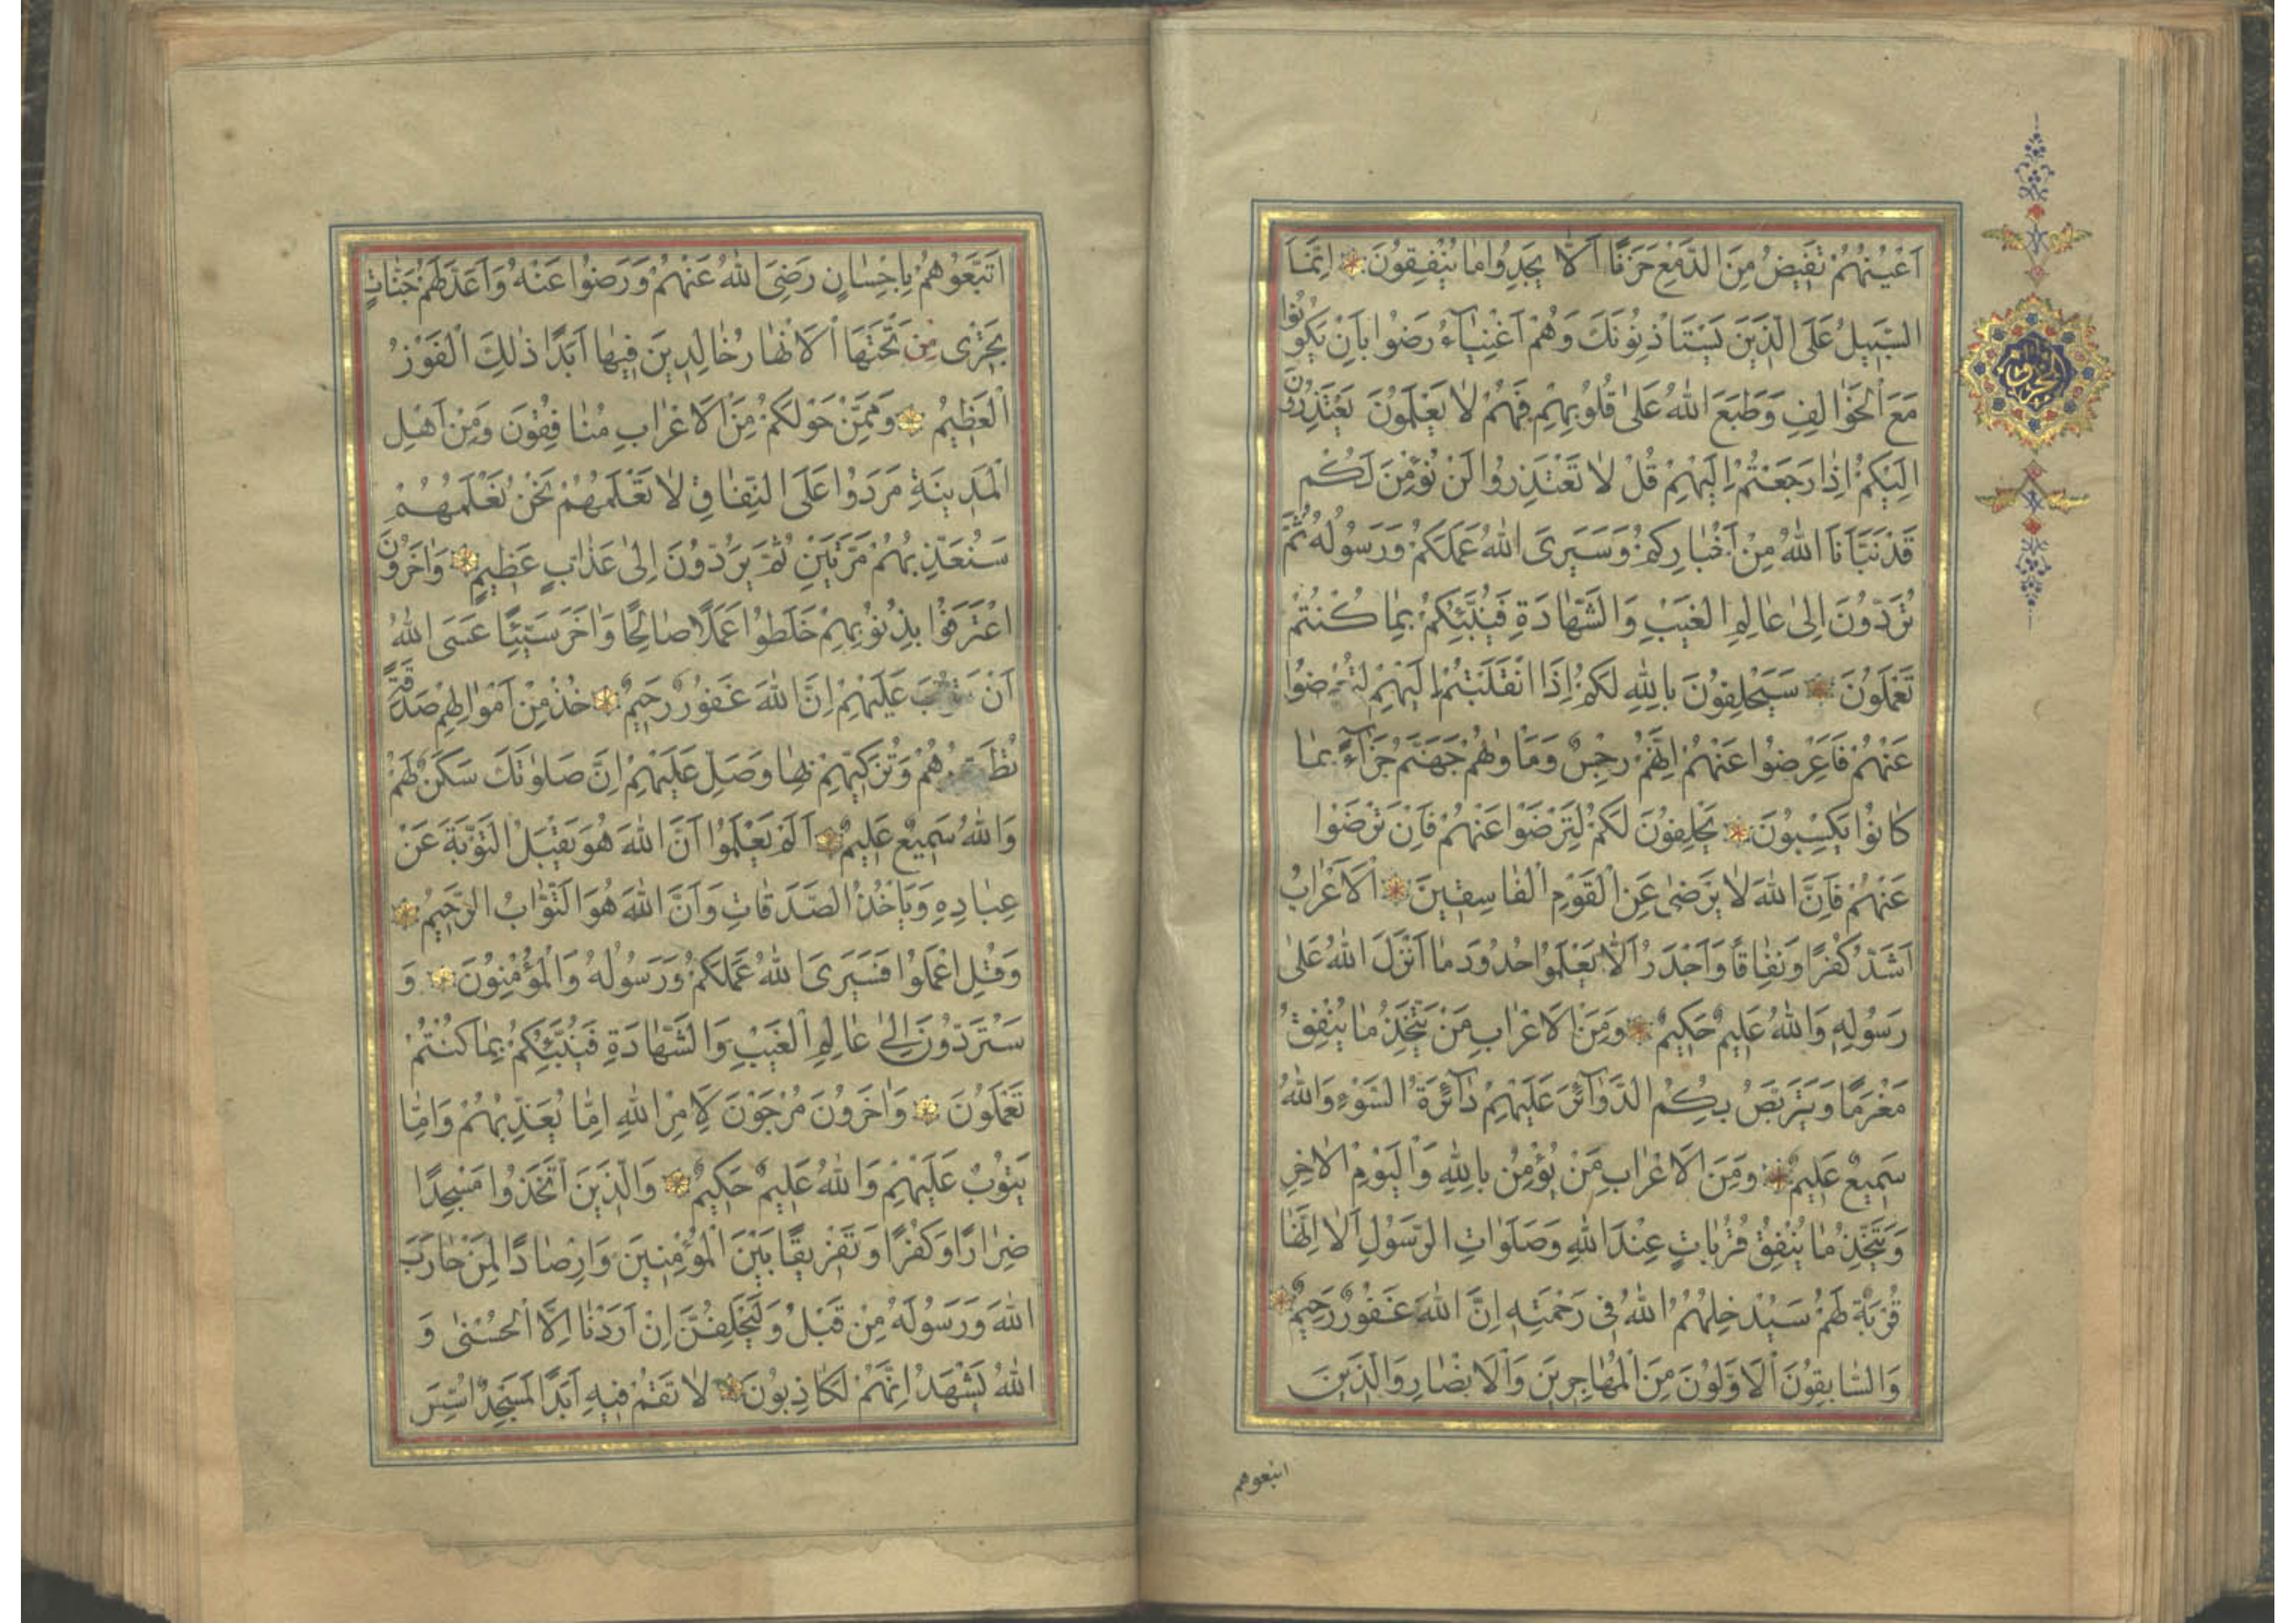 اَعْيُنُهُمْ تَفِيضُ مِنَ الدَّمْعِ حَزَنًا اَلَّا يَجِدُوا مَا يُنْفِقُونَ اِنَّمَا
السَّبِيلُ عَلَى الَّذِينَ يَسْتَاْذِنُونَكَ وَهُمْ اَغْنِيَاءُ رَضُوا بِاَنْ يَكُونُوا
مَعَ الْخَوَالِفِ وَطَبَعَ اللّٰهُ عَلٰى قُلُوبِهِمْ فَهُمْ لَا يَعْلَمُونَ يَعْتَذِرُونَ
اِلَيْكُمْ اِذَا رَجَعْتُمْ اِلَيْهِمْ قُلْ لَا تَعْتَذِرُوا لَنْ نُؤْمِنَ لَكُمْ
قَدْ نَبَّاَنَا اللّٰهُ مِنْ اَخْبَارِكُمْ وَسَيَرَى اللّٰهُ عَمَلَكُمْ وَرَسُولُهُ ثُمَّ
تُرَدُّونَ اِلٰى عَالِمِ الْغَيْبِ وَالشَّهَادَةِ فَيُنَبِّئُكُمْ بِمَا كُنْتُمْ
تَعْمَلُونَ سَيَحْلِفُونَ بِاللّٰهِ لَكُمْ اِذَا انْقَلَبْتُمْ اِلَيْهِمْ لِتُعْرِضُوا
عَنْهُمْ فَاَعْرِضُوا عَنْهُمْ اِنَّهُمْ رِجْسٌ وَمَاْوٰيهُمْ جَهَنَّمُ جَزَاءً بِمَا
كَانُوا يَكْسِبُونَ يَحْلِفُونَ لَكُمْ لِتَرْضَوْا عَنْهُمْ فَاِنْ تَرْضَوْا
عَنْهُمْ فَاِنَّ اللّٰهَ لَا يَرْضٰى عَنِ الْقَوْمِ الْفَاسِقِينَ اَلْاَعْرَابُ
اَشَدُّ كُفْرًا وَنِفَاقًا وَاَجْدَرُ اَلَّا يَعْلَمُوا حُدُودَ مَا اَنْزَلَ اللّٰهُ عَلٰى
رَسُولِهِ وَاللّٰهُ عَلِيمٌ حَكِيمٌ وَمِنَ الْاَعْرَابِ مَنْ يَتَّخِذُ مَا يُنْفِقُ
مَغْرَمًا وَيَتَرَبَّصُ بِكُمُ الدَّوَائِرَ عَلَيْهِمْ دَائِرَةُ السَّوْءِ وَاللّٰهُ
سَمِيعٌ عَلِيمٌ وَمِنَ الْاَعْرَابِ مَنْ يُؤْمِنُ بِاللّٰهِ وَالْيَوْمِ الْاٰخِرِ
وَيَتَّخِذُ مَا يُنْفِقُ قُرُبَاتٍ عِنْدَ اللّٰهِ وَصَلَوَاتِ الرَّسُولِ اَلَا اِنَّهَا
قُرْبَةٌ لَهُمْ سَيُدْخِلُهُمُ اللّٰهُ فِى رَحْمَتِهِ اِنَّ اللّٰهَ غَفُورٌ رَحِيمٌ
وَالسَّابِقُونَ الْاَوَّلُونَ مِنَ الْمُهَاجِرِينَ وَالْاَنْصَارِ وَالَّذِينَ
اتبعوهم
اتَّبَعُوهُمْ بِاِحْسَانٍ رَضِىَ اللّٰهُ عَنْهُمْ وَرَضُوا عَنْهُ وَاَعَدَّ لَهُمْ جَنَّاتٍ
تَجْرِى مِنْ تَحْتِهَا الْاَنْهَارُ خَالِدِينَ فِيهَا اَبَدًا ذٰلِكَ الْفَوْزُ
الْعَظِيمُ وَمِمَّنْ حَوْلَكُمْ مِنَ الْاَعْرَابِ مُنَافِقُونَ وَمِنْ اَهْلِ
الْمَدِينَةِ مَرَدُوا عَلَى النِّفَاقِ لَا تَعْلَمُهُمْ نَحْنُ نَعْلَمُهُمْ
سَنُعَذِّبُهُمْ مَرَّتَيْنِ ثُمَّ يُرَدُّونَ اِلٰى عَذَابٍ عَظِيمٍ وَاٰخَرُونَ
اعْتَرَفُوا بِذُنُوبِهِمْ خَلَطُوا عَمَلًا صَالِحًا وَاٰخَرَ سَيِّئًا عَسَى اللّٰهُ
اَنْ يَتُوبَ عَلَيْهِمْ اِنَّ اللّٰهَ غَفُورٌ رَحِيمٌ خُذْ مِنْ اَمْوَالِهِمْ صَدَقَةً
تُطَهِّرُهُمْ وَتُزَكِّيهِمْ بِهَا وَصَلِّ عَلَيْهِمْ اِنَّ صَلٰوتَكَ سَكَنٌ لَهُمْ
وَاللّٰهُ سَمِيعٌ عَلِيمٌ اَلَمْ يَعْلَمُوا اَنَّ اللّٰهَ هُوَ يَقْبَلُ التَّوْبَةَ عَنْ
عِبَادِهِ وَيَاْخُذُ الصَّدَقَاتِ وَاَنَّ اللّٰهَ هُوَ التَّوَّابُ الرَّحِيمُ
وَقُلِ اعْمَلُوا فَسَيَرَى اللّٰهُ عَمَلَكُمْ وَرَسُولُهُ وَالْمُؤْمِنُونَ وَ
سَتُرَدُّونَ اِلٰى عَالِمِ الْغَيْبِ وَالشَّهَادَةِ فَيُنَبِّئُكُمْ بِمَا كُنْتُمْ
تَعْمَلُونَ وَاٰخَرُونَ مُرْجَوْنَ لِاَمْرِ اللّٰهِ اِمَّا يُعَذِّبُهُمْ وَاِمَّا
يَتُوبُ عَلَيْهِمْ وَاللّٰهُ عَلِيمٌ حَكِيمٌ وَالَّذِينَ اتَّخَذُوا مَسْجِدًا
ضِرَارًا وَكُفْرًا وَتَفْرِيقًا بَيْنَ الْمُؤْمِنِينَ وَاِرْصَادًا لِمَنْ حَارَبَ
اللّٰهَ وَرَسُولَهُ مِنْ قَبْلُ وَلَيَحْلِفُنَّ اِنْ اَرَدْنَا اِلَّا الْحُسْنٰى وَ
اللّٰهُ يَشْهَدُ اِنَّهُمْ لَكَاذِبُونَ لَا تَقُمْ فِيهِ اَبَدًا لَمَسْجِدٌ اُسِّسَ